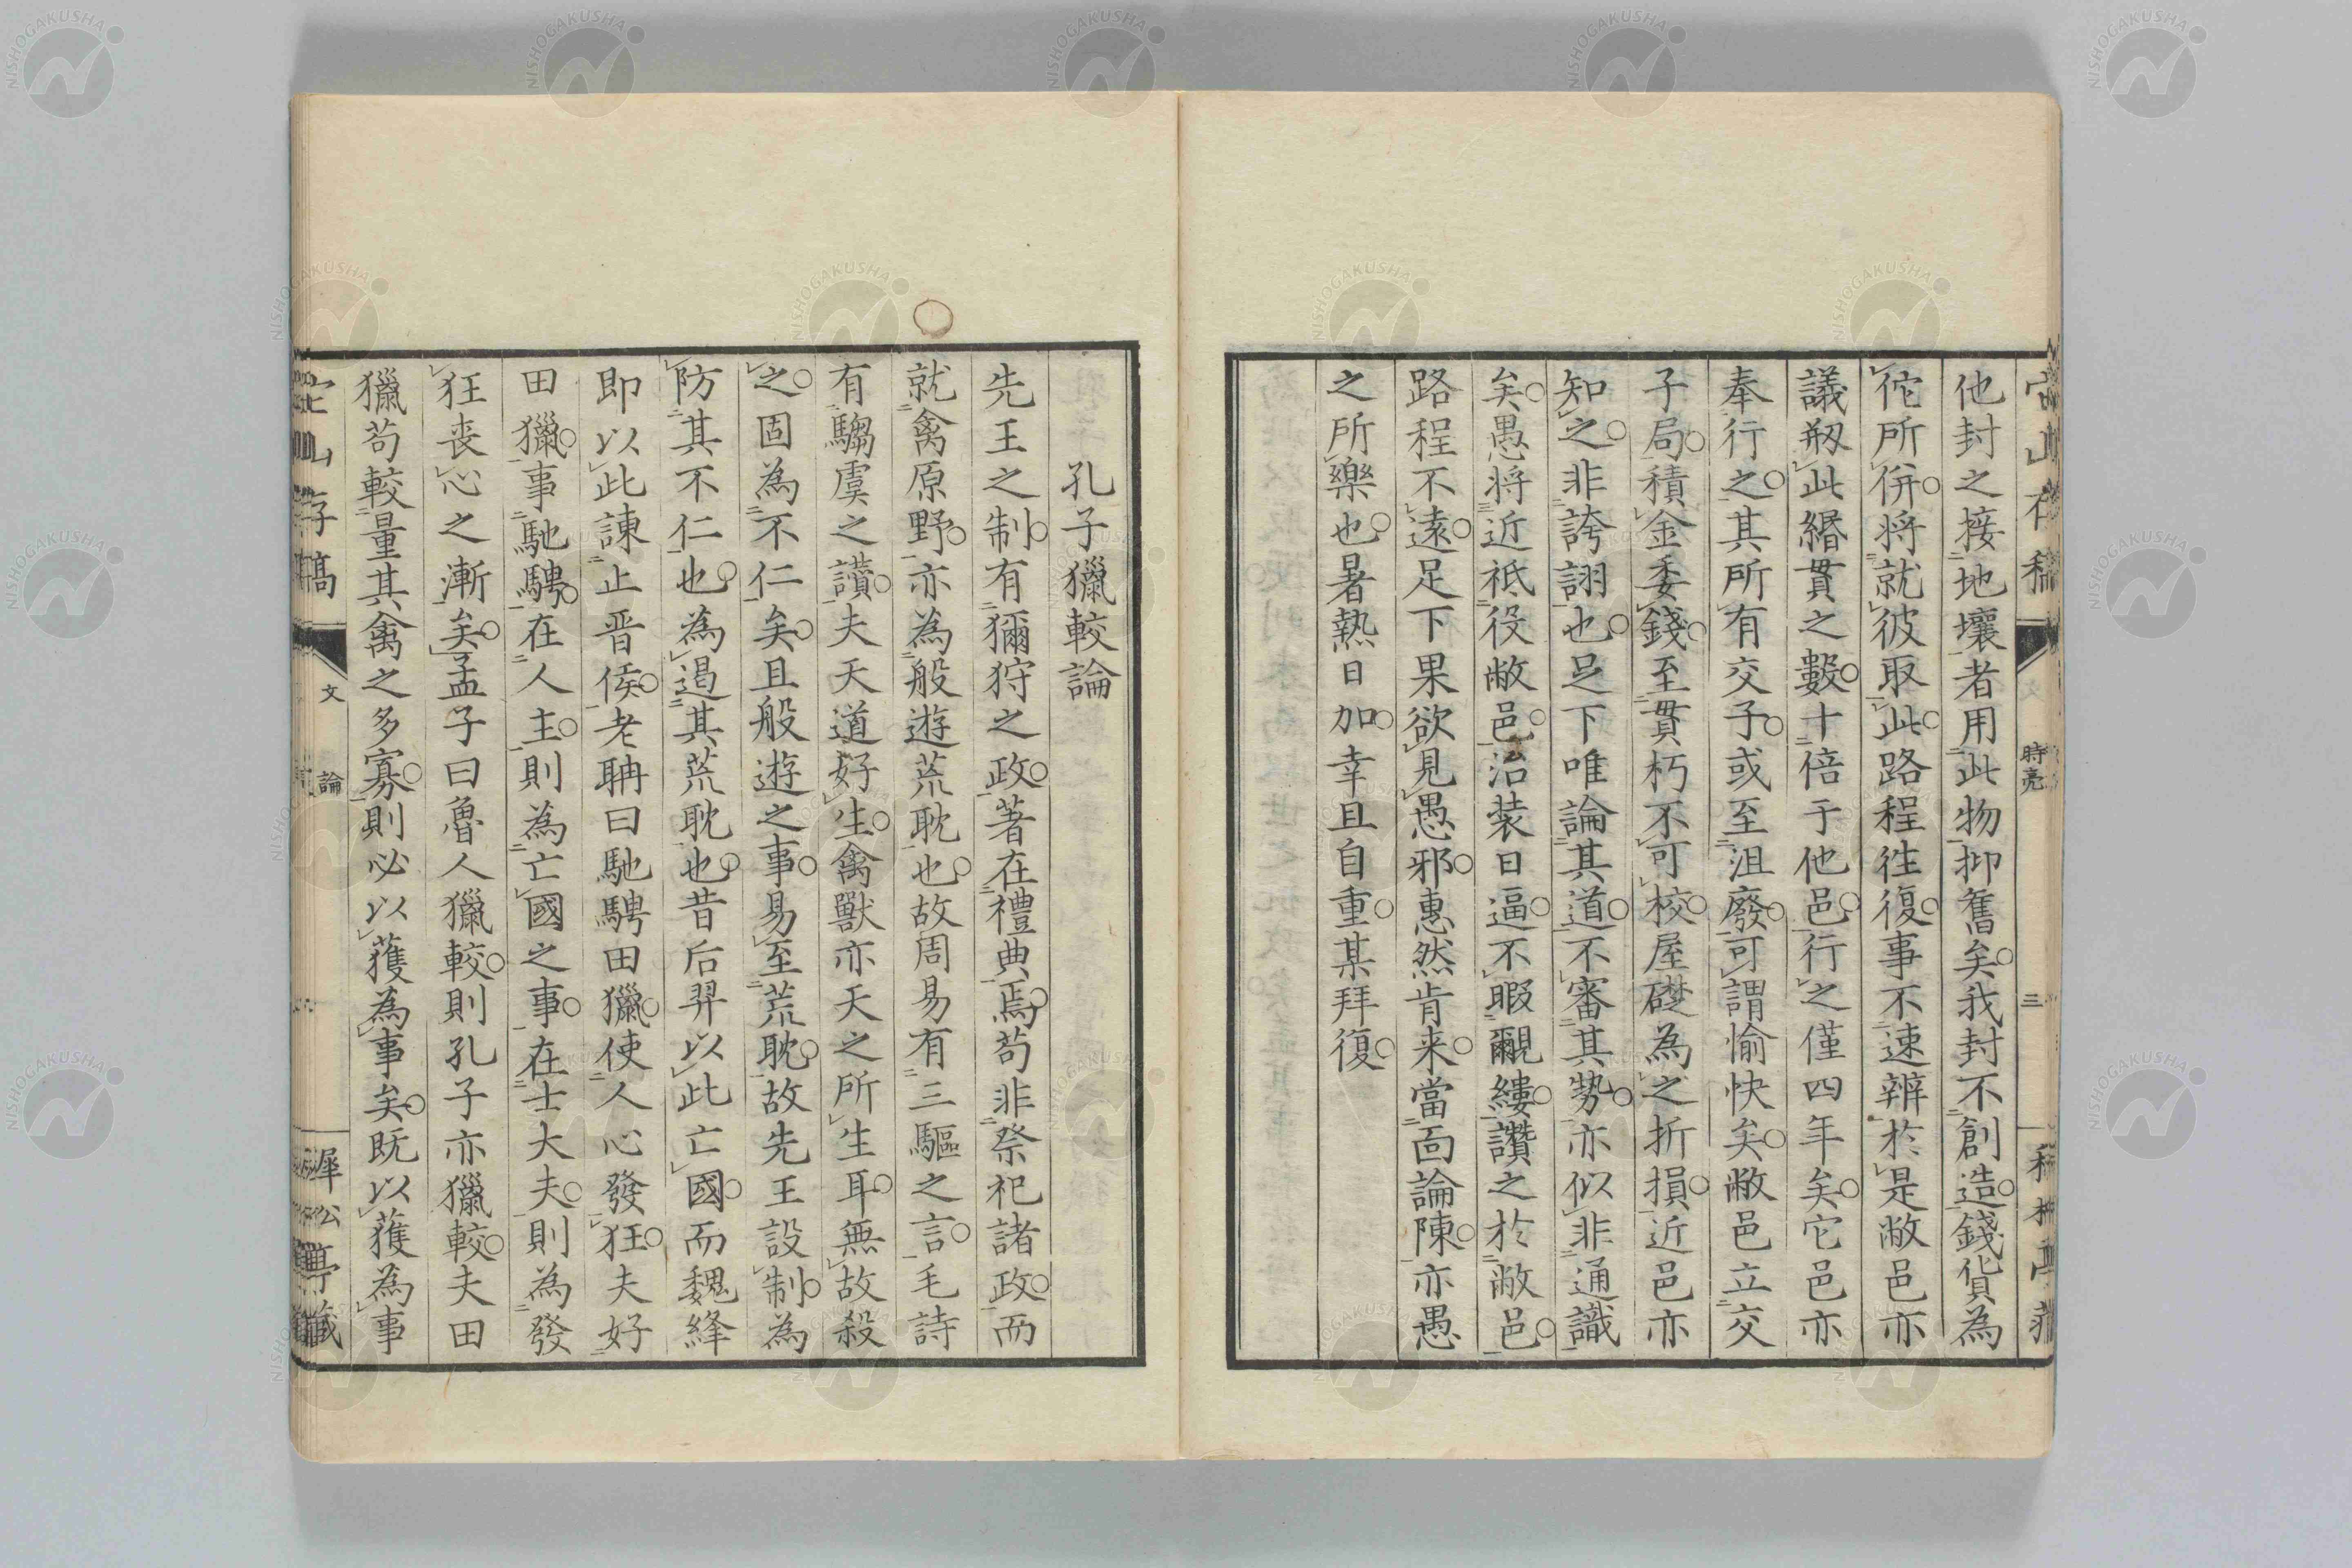 他封之接地壤者用此物抑舊矣我封不創造錢貨為
佗所併将就彼取此路程徃復事不速辨於是敝邑亦
議剏此緡貫之數十倍于他邑行之僅四年矣它邑亦
奉行之其所有交子或至沮廢可謂愉快矣敝邑立交
子局積金委錢至貫朽不可校屋礎為之折損近邑亦
知之非誇詡也足下唯論其道不審其勢亦似非通識
矣愚将近祗役敝邑治装日逼不暇覼縷讚之於敝邑
路程不遠足下果欲見愚邪惠然肯来當面論陳亦愚
之所樂也暑熱日加幸且自重某拜復
時亮
三
孔子獵較論
先王之制有獮狩之政著在禮典焉苟非祭祀諸政而
就禽原野亦為般遊荒耽也故周易有三驅之言毛詩
有騶虞之讚夫天道好生禽獸亦天之所生耳無故殺
之固為不仁矣且般遊之事易至荒耽故先王設制為
防其不仁也為遏其荒耽也昔后羿以此亡國而魏絳
即以此諫止晋侯老聃曰馳騁田獵使人心發狂夫好
田獵事馳騁在人主則為亡國之事在士大夫則為發
狂喪心之漸矣孟子曰魯人獵較則孔子亦獵較夫田
獵苟較量其禽之多寡則必以獲為事矣既以獲為事
文
論
NISHOGAKUSHA